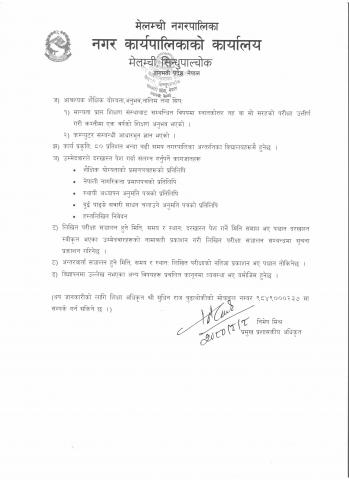 मेलम्ची नगरपालिका
नगर कार्यपालिकाको कार्यालय
मेलम्ची सिन्धुपाल्चोक
बागमती प्रदेश नेपाल
ज) आवश्यक शैक्षिक योग्यता, अनुभव, तालिम तथा सिप:
१) मान्यता प्राप्त शिक्षण संस्थाबाट सम्बन्धित विषयमा स्नातकोत्तर तह वा सो सरहको परीक्षा उत्तीर्ण
गरी कम्तीमा एक वर्षको शिक्षण अनुभव भएको ।
२) कम्प्युटर सम्बन्धी आधारभूत ज्ञान भएको ।
झ) कार्य प्रकृति: ८० प्रतिशत भन्दा बढी समय नगरपालिका अन्तर्गतका विद्यालयहरूमै हुनेछ ।
ञ) उम्मेदवारले दरखास्त पेश गर्दा संलग्न गर्नुपर्ने कागजातहरू
• शैक्षिक योग्यताको प्रमाणपत्रहरूको प्रतिलिपि
• नेपाली नागरिकता प्रमाणपत्रको प्रतिलिपि
• स्थायी अध्यापन अनुमति पत्रको प्रतिलिपि
• दुई पाङ्ग्रे सवारी साधन चलाउने अनुमति पत्रको प्रतिलिपि
• हस्तलिखित निवेदन
ट) लिखित परीक्षा सञ्चालन हुने मिति, समय र स्थान: दरखास्त पेश गर्ने मिति समाप्त भए पश्चात दरखास्त
स्वीकृत भएका उम्मेदवारहरूको नामावली प्रकाशन गरी लिखित परीक्षा सञ्चालन सम्बन्धमा सूचना
प्रकाशन गरिनेछ ।
ठ) अन्तरवार्ता सञ्चालन हुने मिति, समय र स्थान: लिखित परीक्षाको नतिजा प्रकाशन भए पश्चात तोकिनेछ ।
ड) विज्ञापनमा उल्लेख नभएका अन्य विषयहरू प्रचलित कानूनमा व्यवस्था भए बमोजिम हुनेछ ।
(थप जानकारीको लागि शिक्षा अधिकृत श्री सुविन राज बुढाथोकीको मोबाइल नम्बर ९८४९०००२३७ मा
सम्पर्क गर्न सकिने छ ।)
२०८०/२/८
निमेष मिश्र
प्रमुख प्रशासकीय अधिकृत